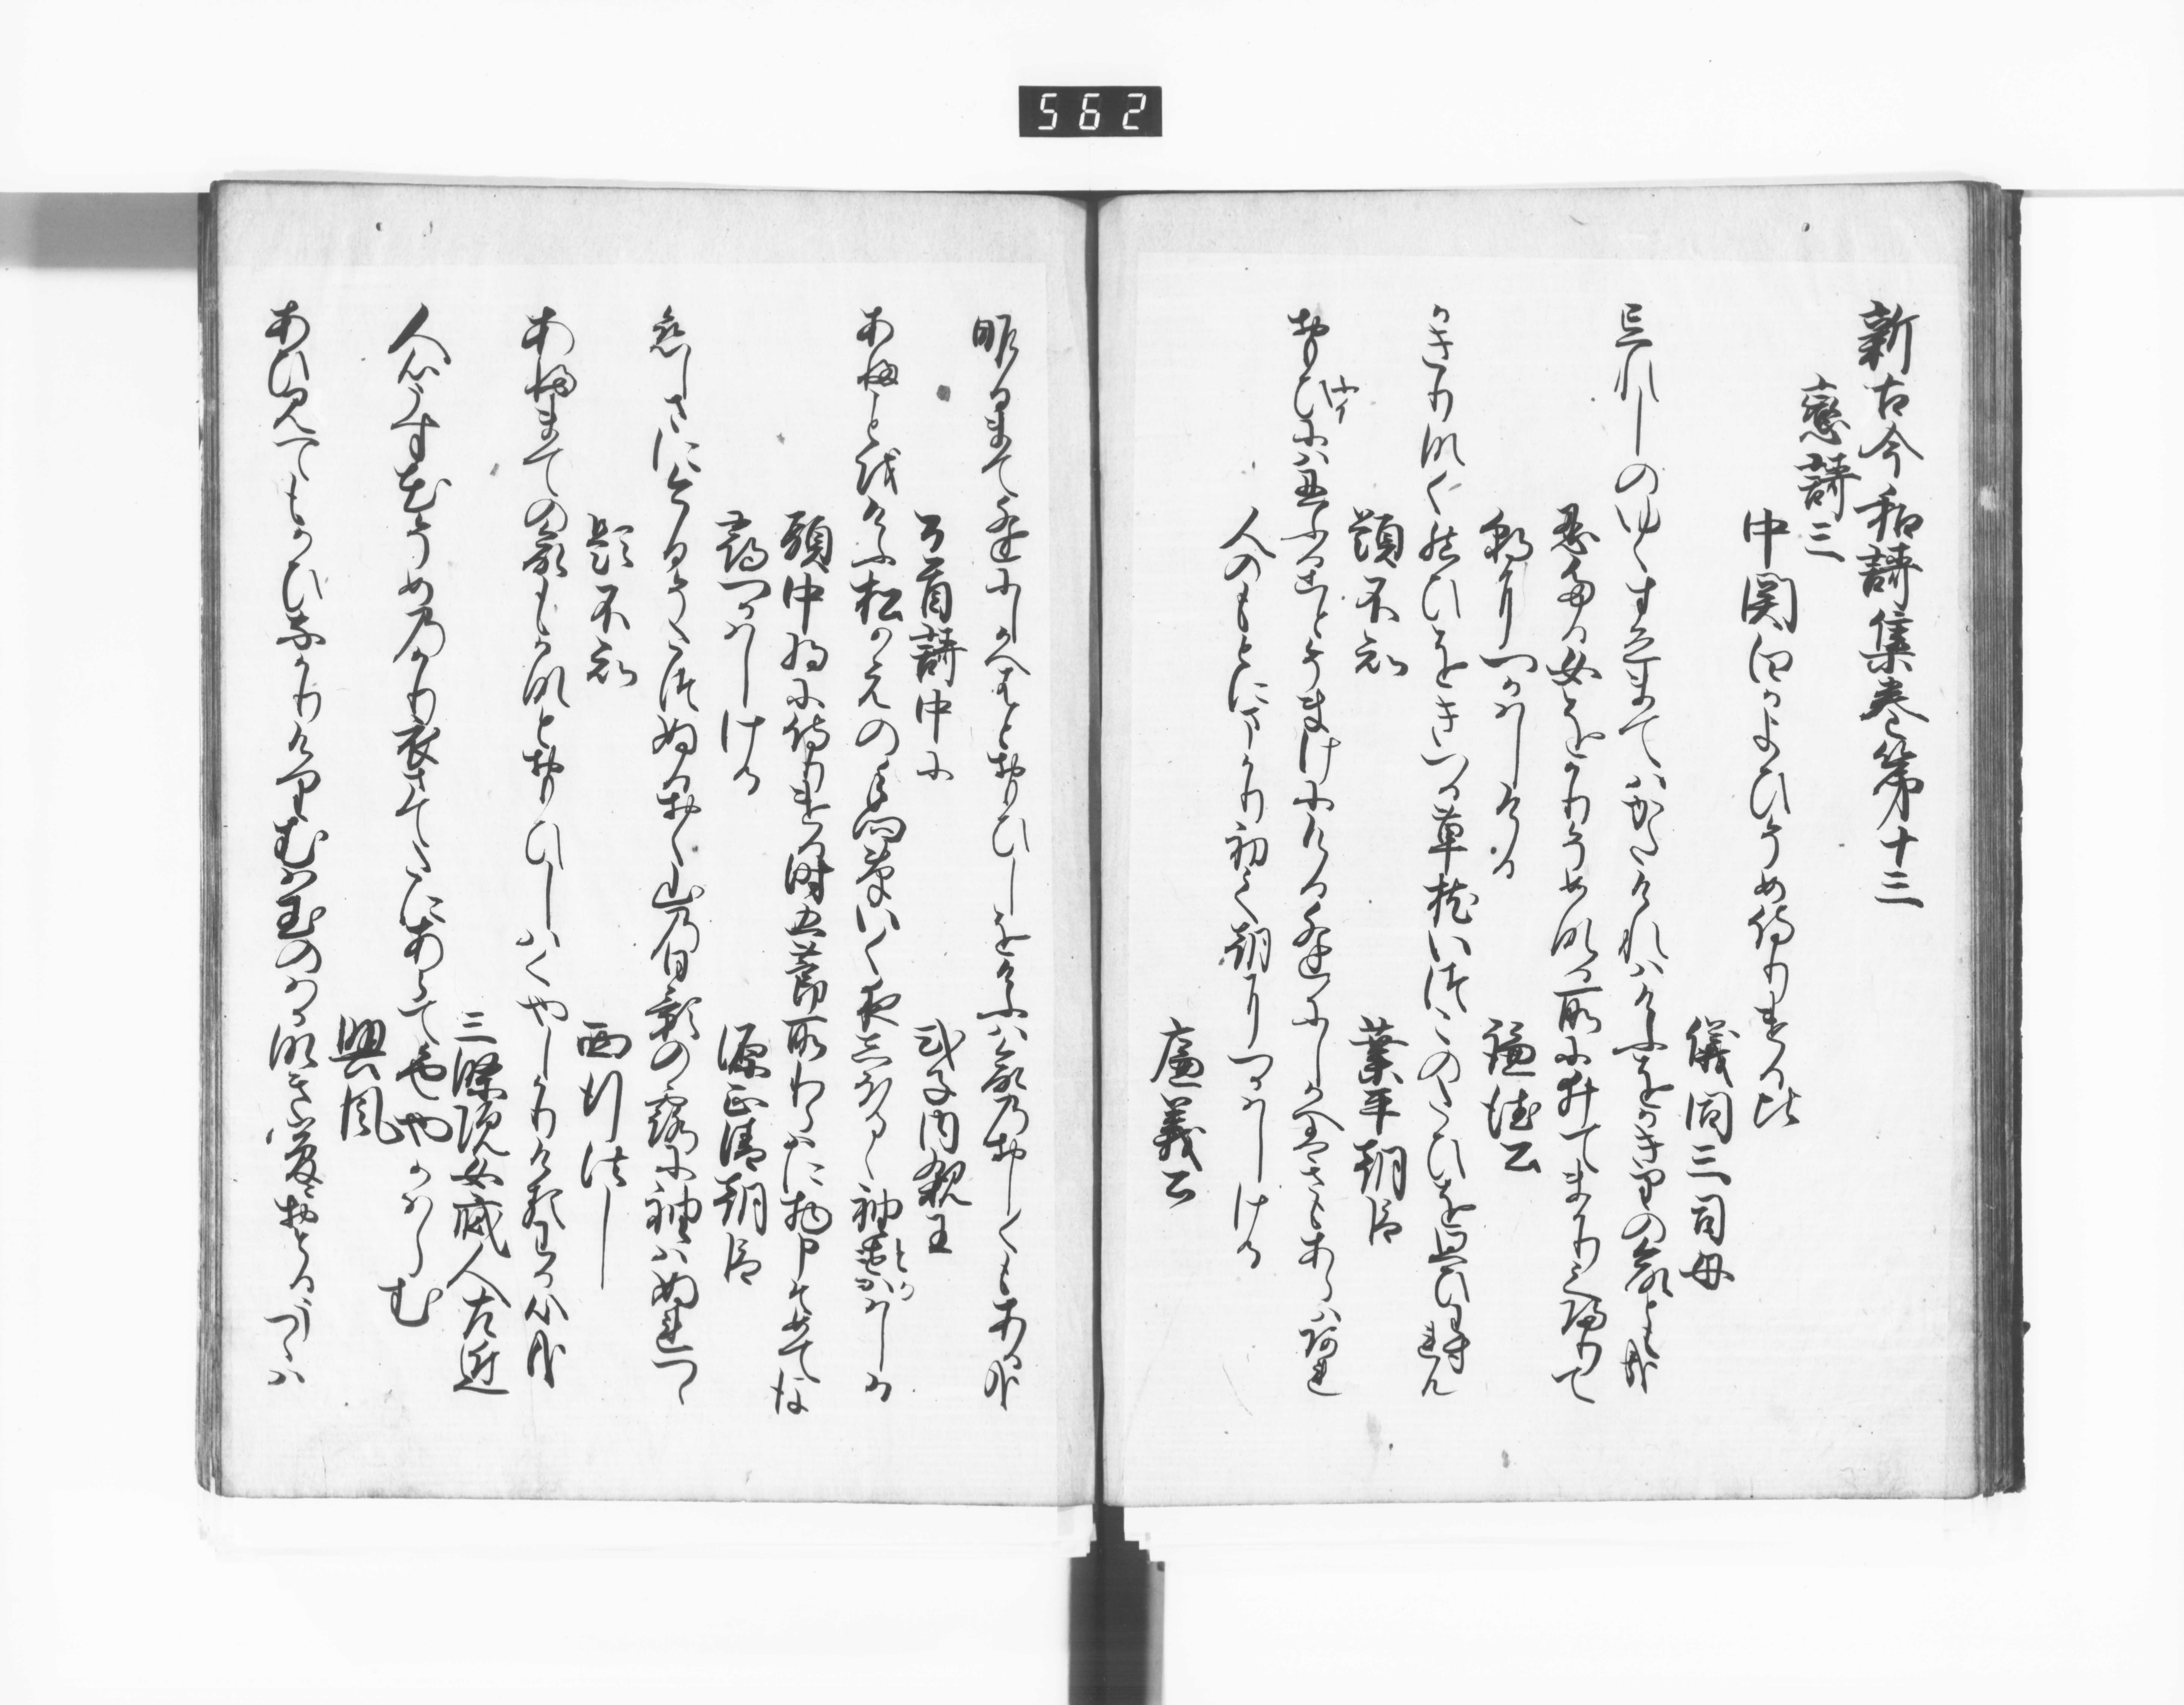 562
新古今和謌集巻第十三
戀謌三
中関白かよひそめ侍りける比
儀同三司母
忘れしのゆくすゑまてハかたけれハけふをかきりの命ともか那
忍たる女をかりそめなる所にゐてまかりて帰りて
朝につかハしける
謙徳公
かきりなくむすひをきつる草枕いつこのたひを思ひ忘れん
題不知
業平朝臣
おもひにハ忍ふることそまけにける逢にしかへハさもあらハあれ
人のもとにまかり初て朝につかハしける
廉義公
昨日まて逢にしかへハとおもひしをけふハ命のおしくもあるか那
百首謌中に
式子内親王
あふことをけふ松かえの手向草いく夜しほるゝ袖とかハしる
頭中将に侍りける時五節所わらハに物申そめてな
尋つかハしける
源正清朝臣
恋しさにけふそたつぬるおく山の日影の露に袖ハぬれつゝ
題不知
西行法し
あふまての命もかなとおもひしハくやしかりける我心か那
三條院女蔵人左近
人心うす花そめのかり衣さてたにあらて色やかハらむ
興風
あひ見てもかひなかりけりむは玉のはかなき夢におとるうつゝハ